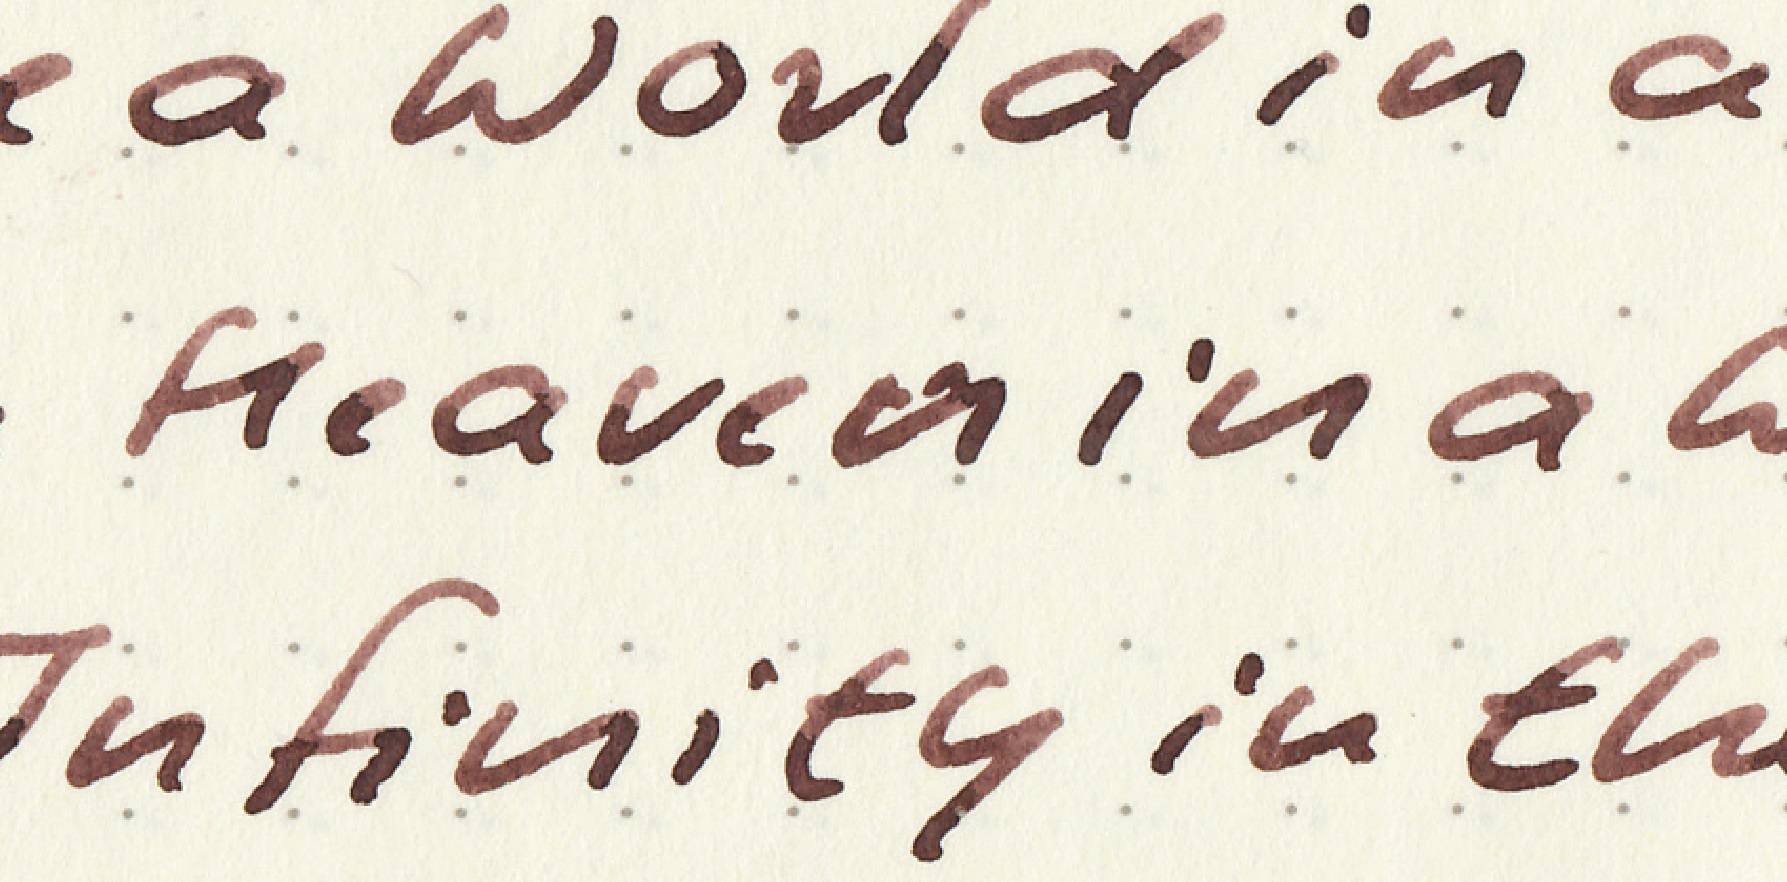 a World in a
Heaven in a
Infinity in the